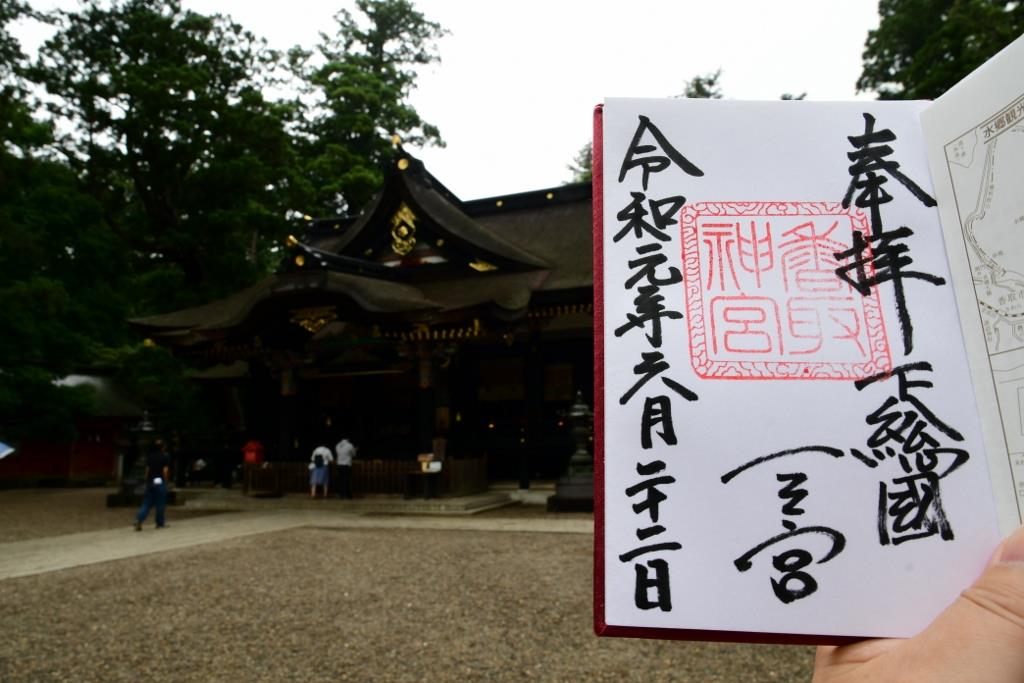 奉拝 下総國
一之宮
香取
神宮
令和元年六月二十二日
水郷観光
香取